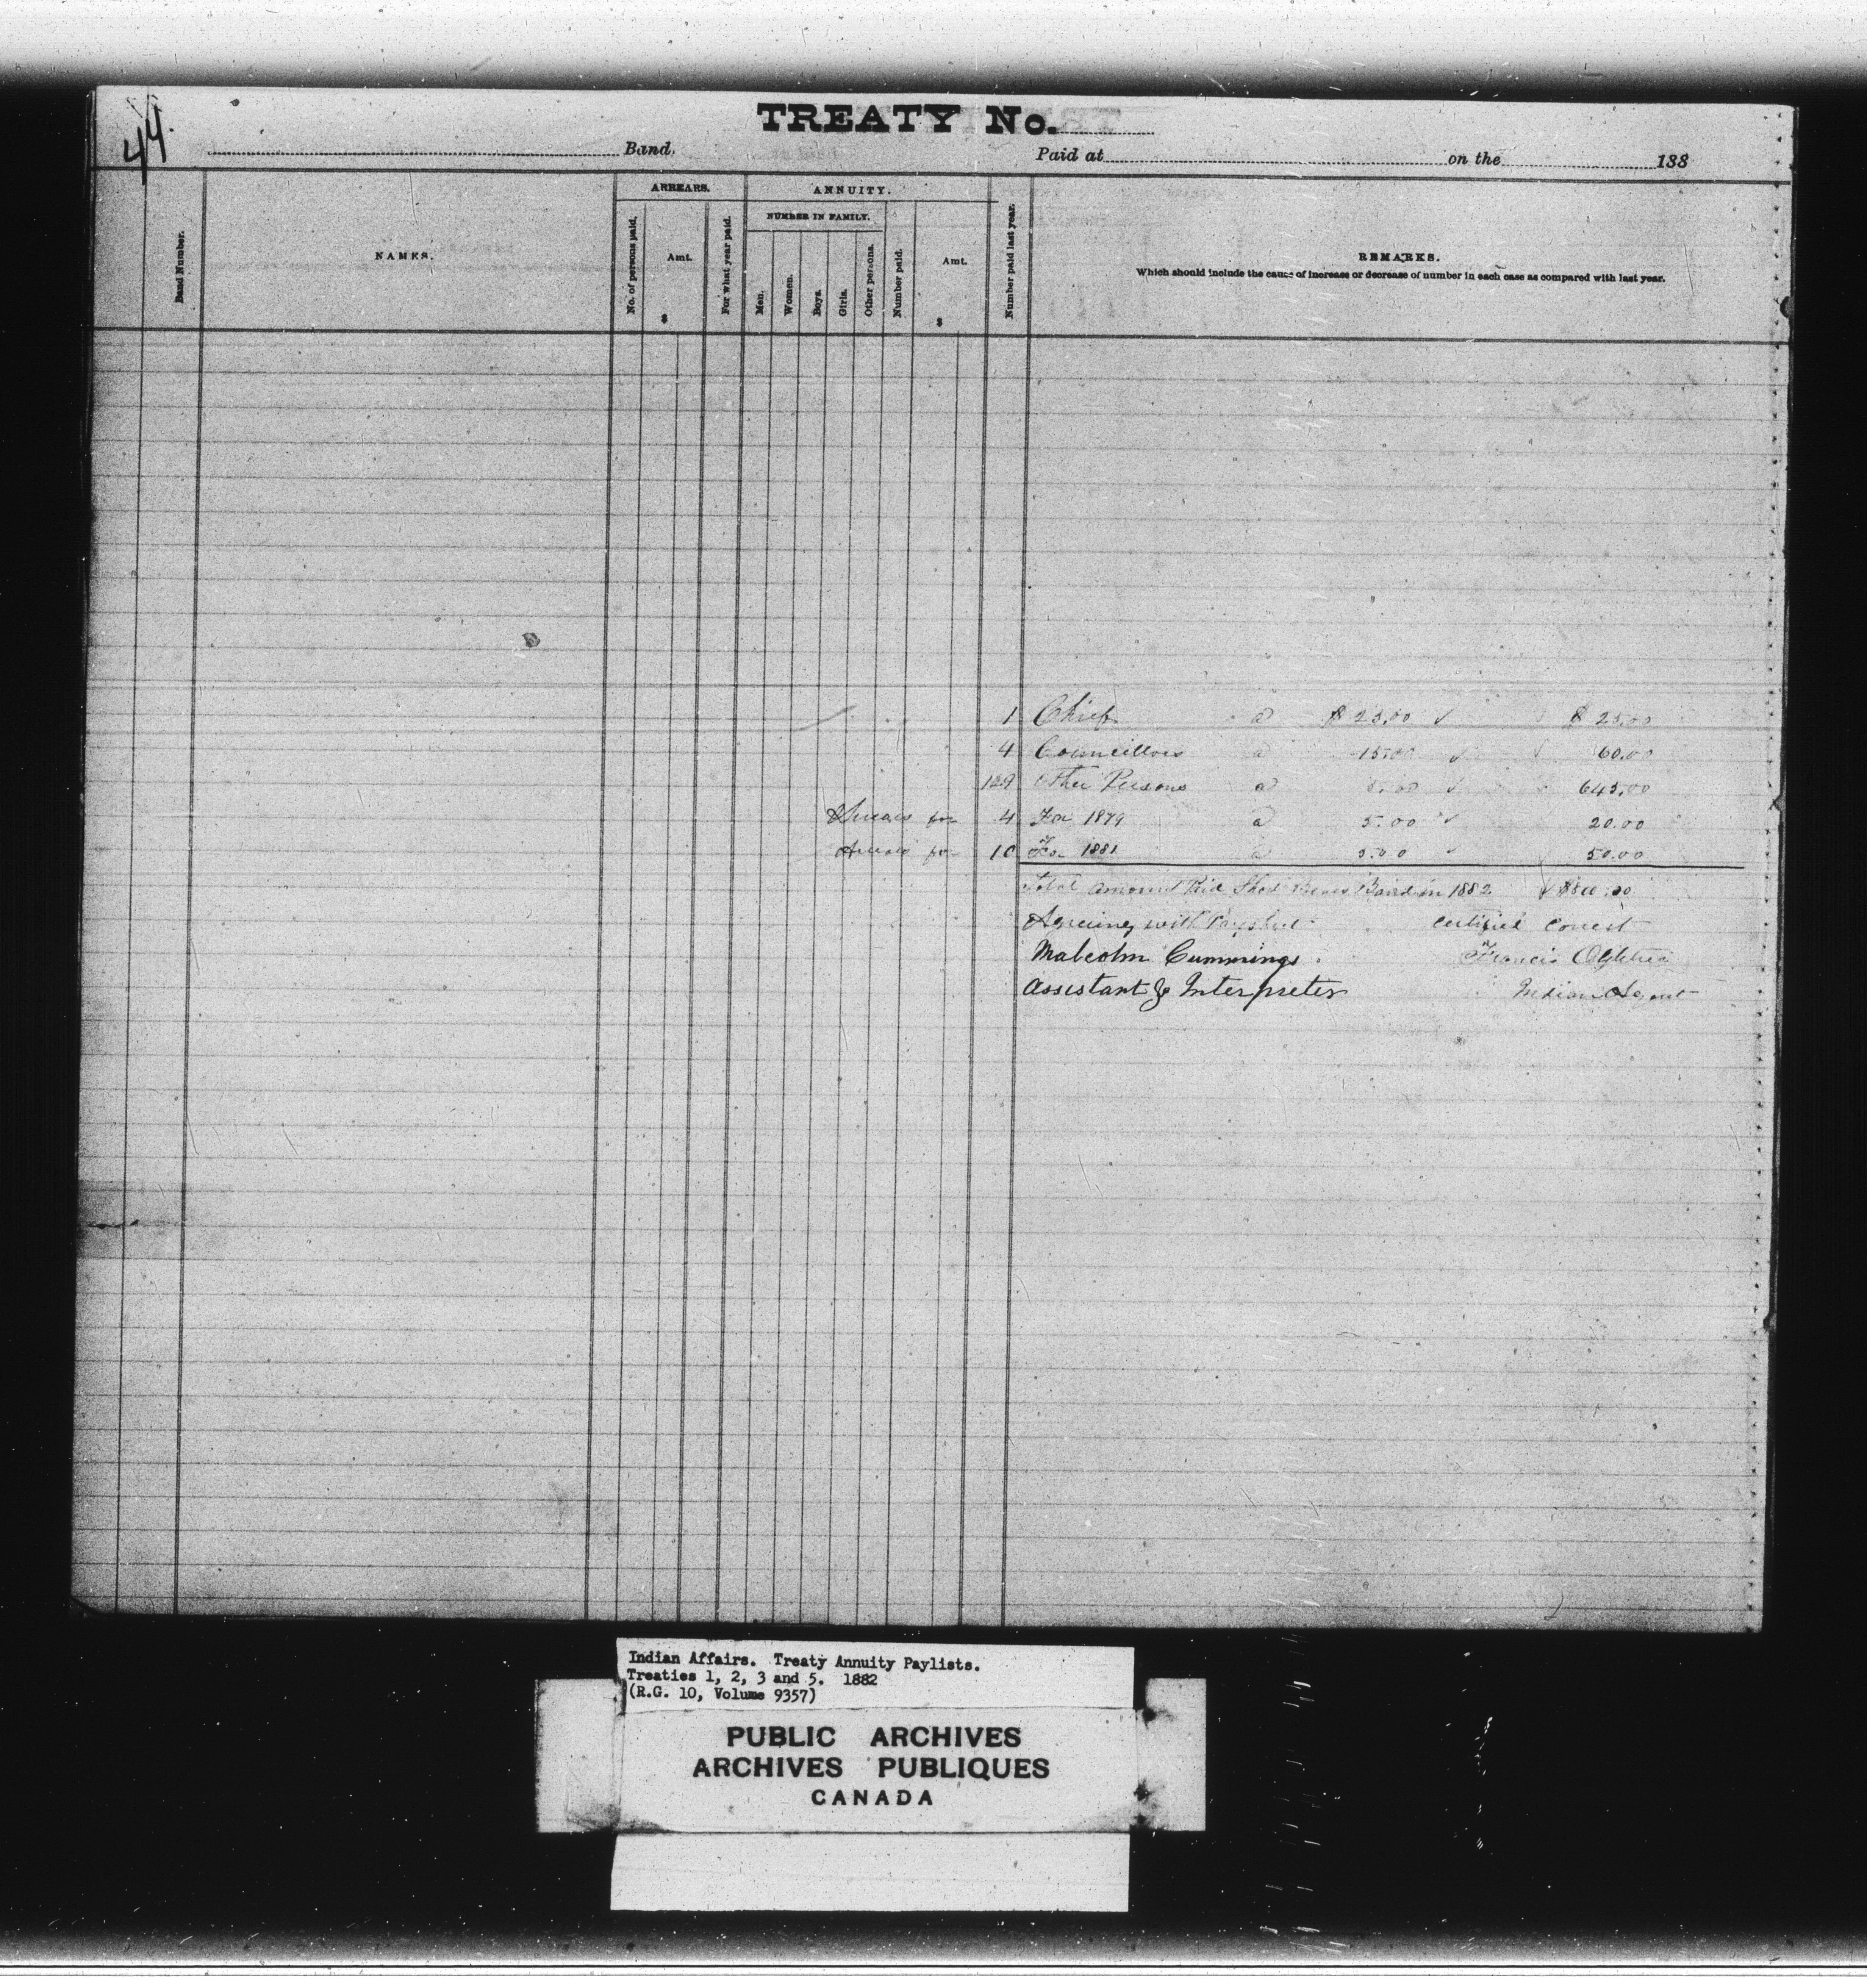 44
TREATY No.
Band. Paid at on the 188
Band Number.
NAMES.
ARREARS.
No. of persons paid.
Amt.
$
For what year paid.
ANNUITY.
NUMBER IN FAMILY.
Men.
Women.
Boys.
Girls.
Other persons.
Number paid.
Amt.
$
Number paid last year.
REMARKS.
Which should include the cause of increase or decrease of number in each case as compared with last year.
1 Chief @ $ 25.00 ✓ $ 25.00
4 Councillors @ 15.00 ✓ 60.00
129 Other Persons @ 5.00 ✓ 645.00
Arrears for 4 For 1879 @ 5.00 ✓ 20.00
Arrears for 10 For 1881 @ 5.00 ✓ 50.00
Total amount Paid Band in 1882 ✓ $800.00
Agreeing with Paysheet certified correct
Malcolm Cummings. Francis
Assistant & Interpreter Indian Agent
Indian Affairs. Treaty Annuity Paylists.
Treaties 1, 2, 3 and 5. 1882
(R.G. 10, Volume 9357)
PUBLIC ARCHIVES
ARCHIVES PUBLIQUES
CANADA